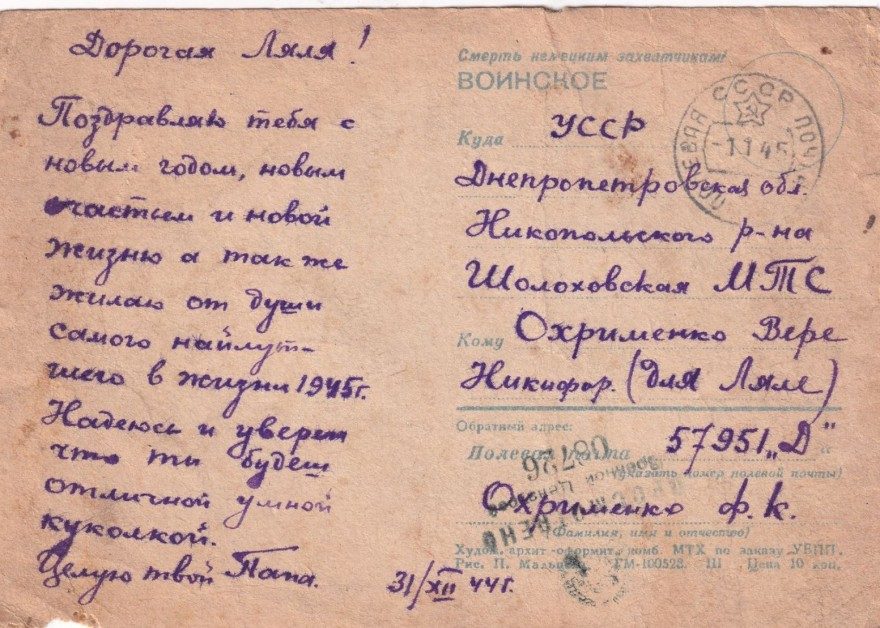 Дорогая Ляля!
Поздравляю тебя с
новым годом, новым
счастьем и новой
жизнью а так же
жилаю от души
самого найлут-
шего в жизни 1945г.
Надеюсь и уверен
что ты будеш
отличной умной
куколкой.
Целую твой Папа.
31/XII 44г.
Смерть немецким захватчикам!
ВОИНСКОЕ
ПОЛЕВАЯ ПОЧТА
СССР
-1.1.45
Куда УССР
Днепропетровская обл.
Никопольского р-на
Шолоховская МТС
Кому Охрименко Вере
Никифор. (для Ляле)
Обратный адрес:
Полевая почта 57951 „Д"
(указать номер полевой почты)
Охрименко Ф. К.
(Фамилия, имя и отчество)
ПРОСМОТРЕНО
Военной Цензурой
08726
Худож. архит-оформит. комб. МТХ по заказу УВПП.
Рис. П. ГМ-100528. III Цена 10 коп.